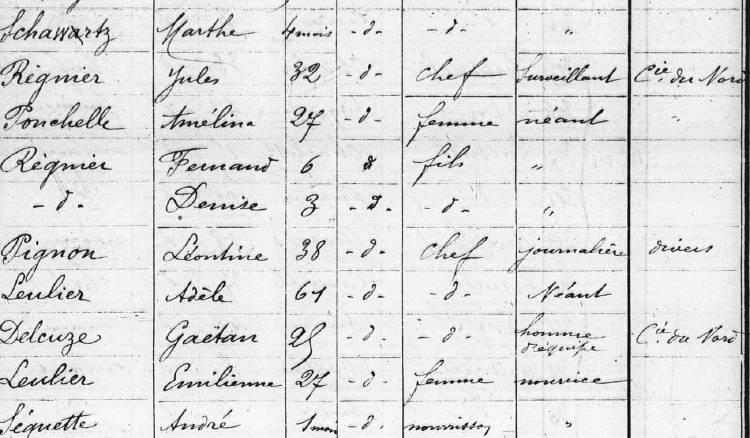 Schawartz Marthe 4 mois -d- -d- "
Régnier Jules 32 -d- chef Surveillant Cie du Nord
Ponchelle Amélina 27 -d- femme néant "
Régnier Fernand 6 d fils "
-d- Denise 3 -d- -d- "
Pignon Léontine 38 -d- chef journalière divers
Leulier Adèle 61 -d- -d- Néant
Deleuze Gaëtan 25 -d- -d- homme d'équipe Cie du Nord
Leulier Emilienne 27 -d- femme nourice
Séguette André 1 mois -d- nourrisson "